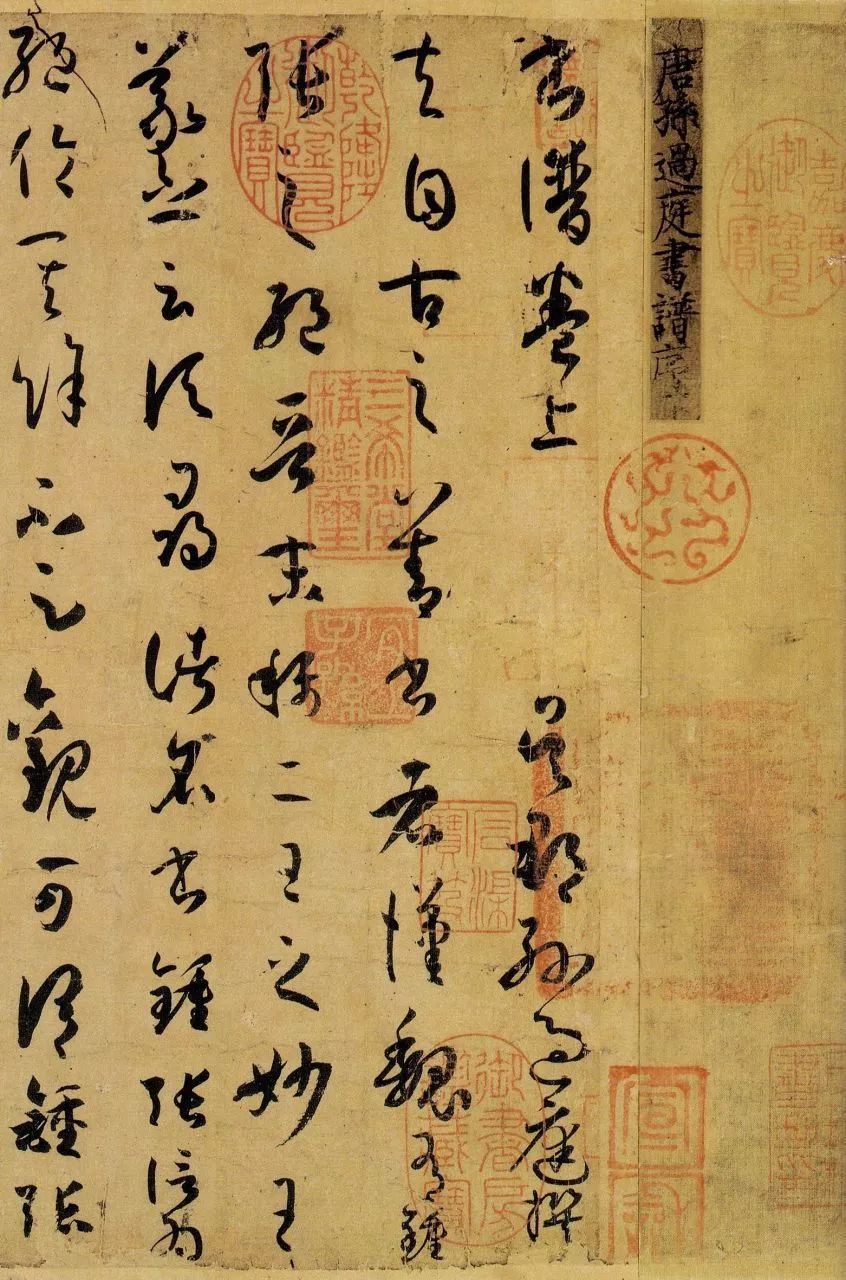 嘉慶御覽之寶
唐孫過庭書譜序
宣和
書譜卷上
吳郡孫過庭撰
夫自古之善書者漢魏有鍾
張之絕晉末稱二王之妙王
羲之云頃尋諸名書鍾張信為
絕倫其餘不足觀可謂鍾張
乾隆御覽之寶
三希堂精鑑璽
宜子孫
石渠寶笈
御書房鑑藏寶